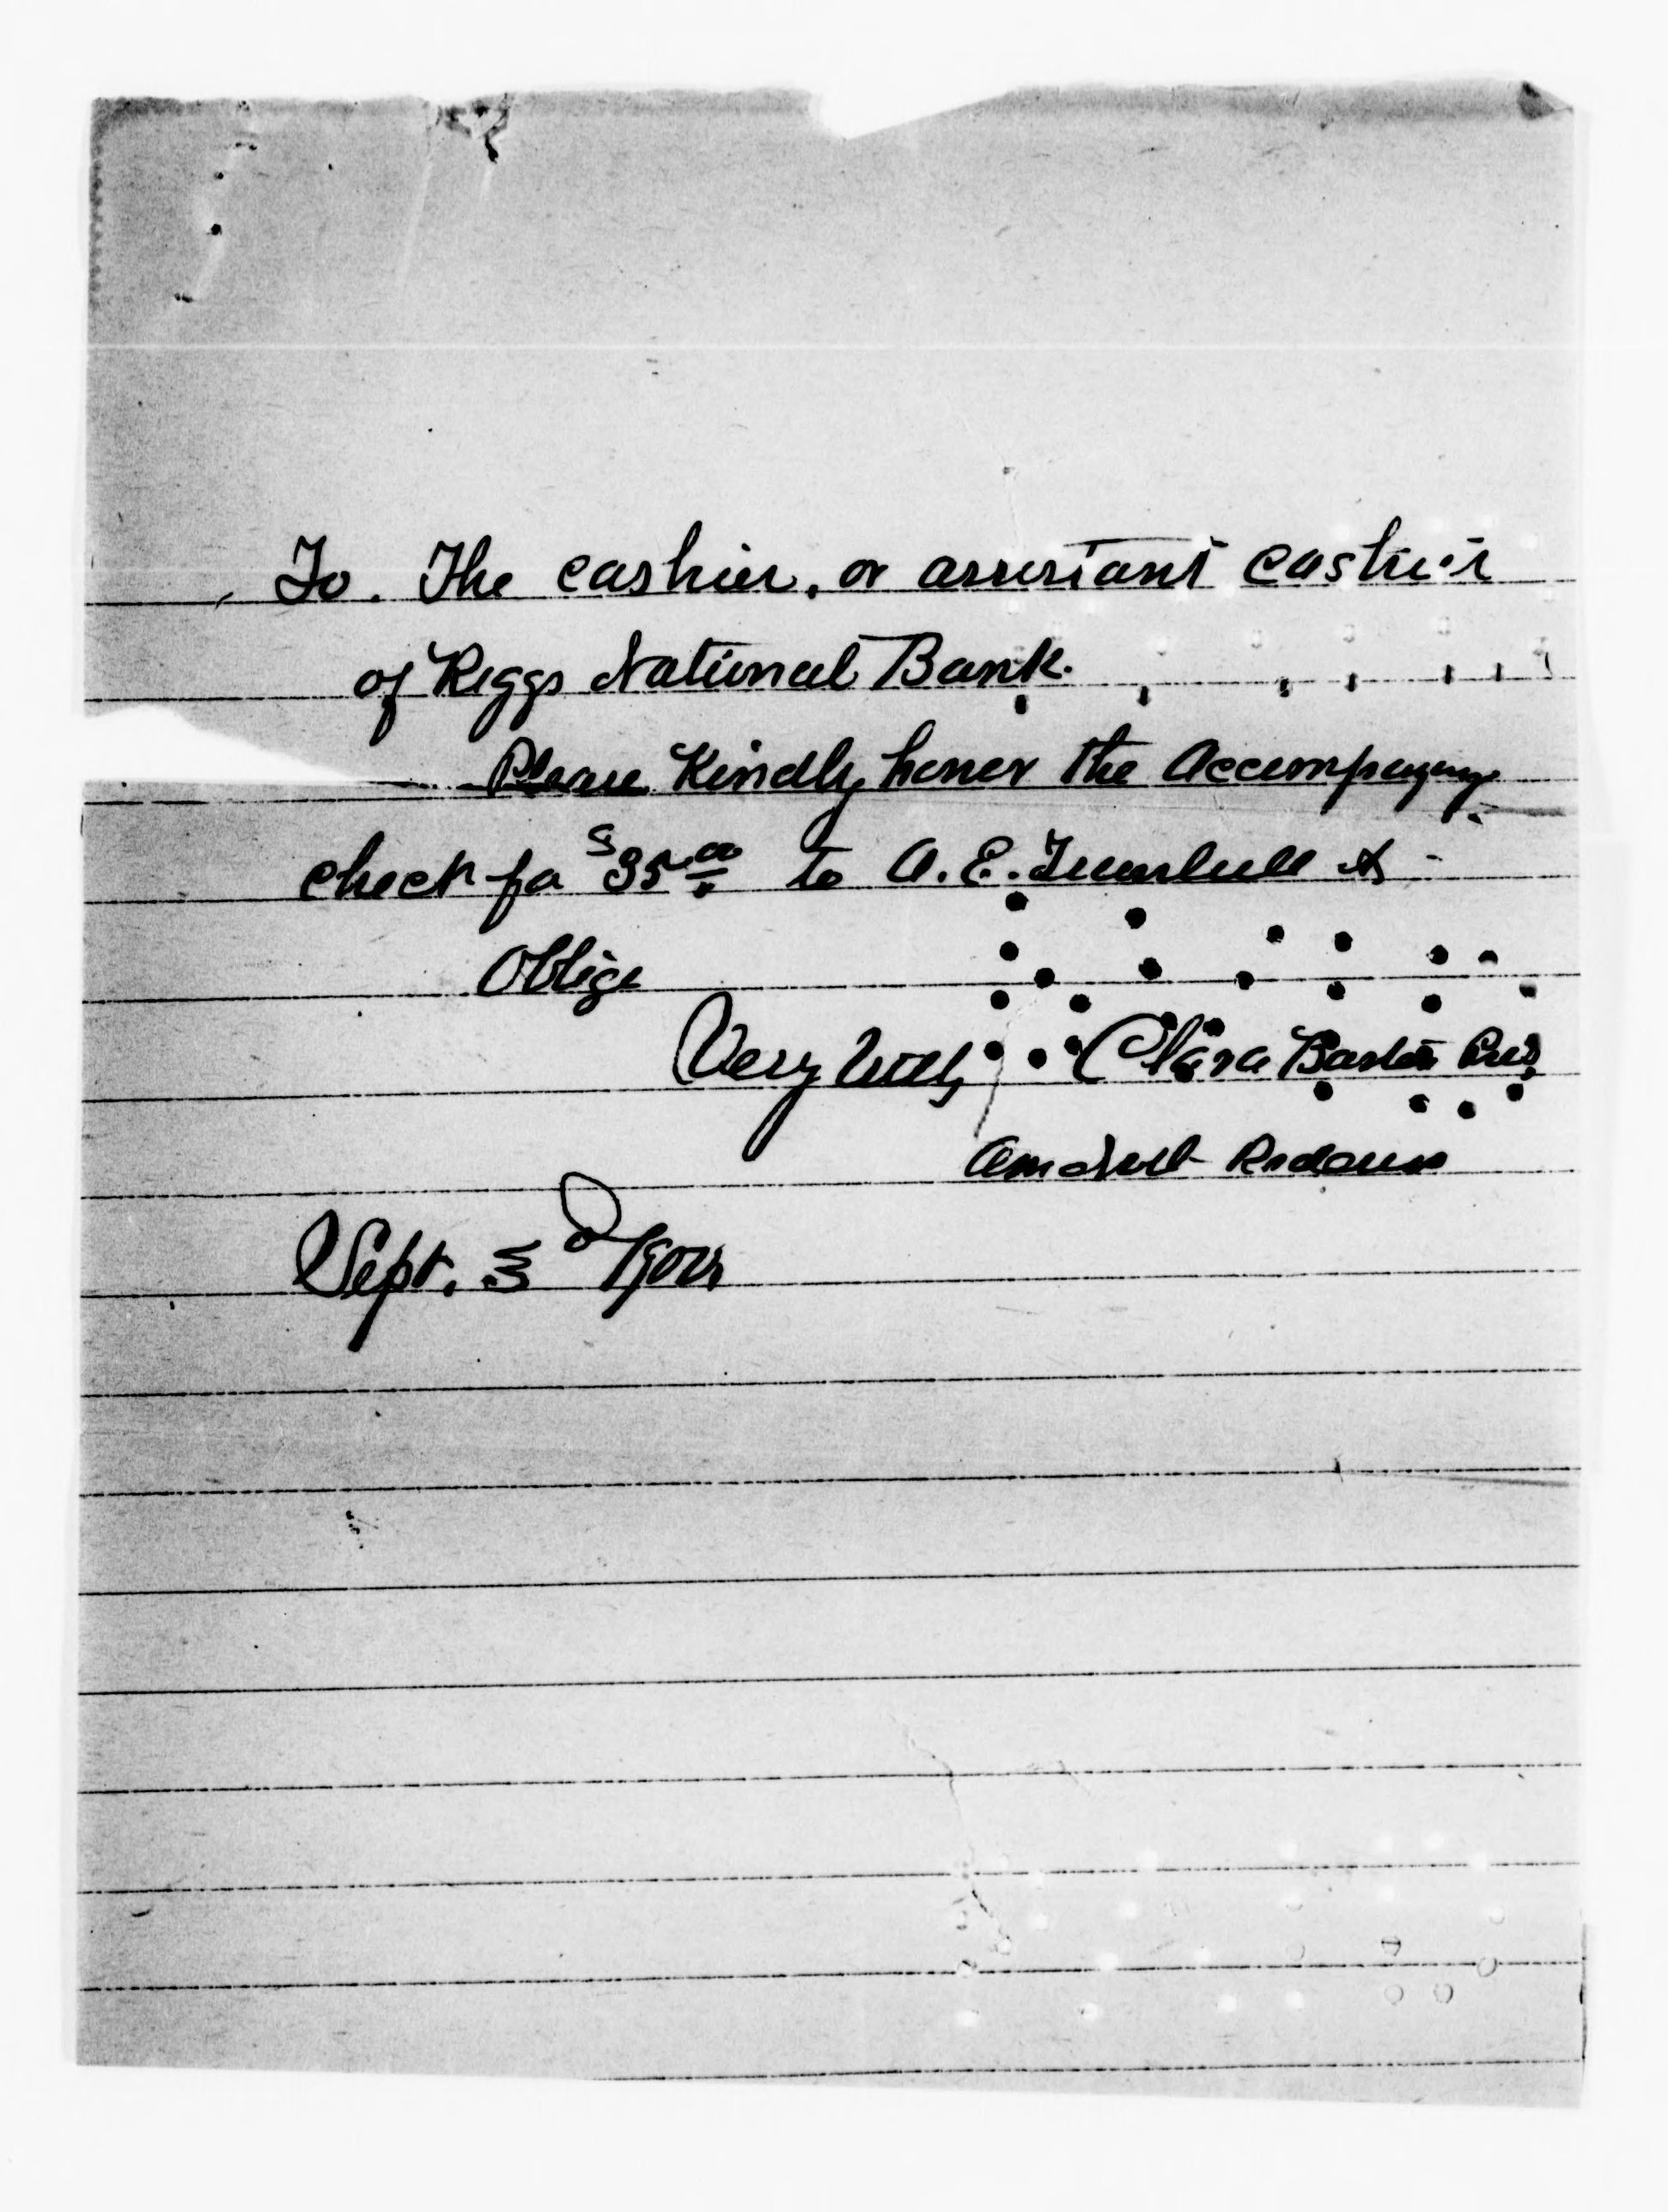 To. The cashier, or assistant cashier
of Riggs National Bank.
Please Kindly honor the Accompanyng
check for $35.00 to A. E. &
Oblige
Very truly, Clara Barton Pres
Am Natl Red
Sept. 3d 190